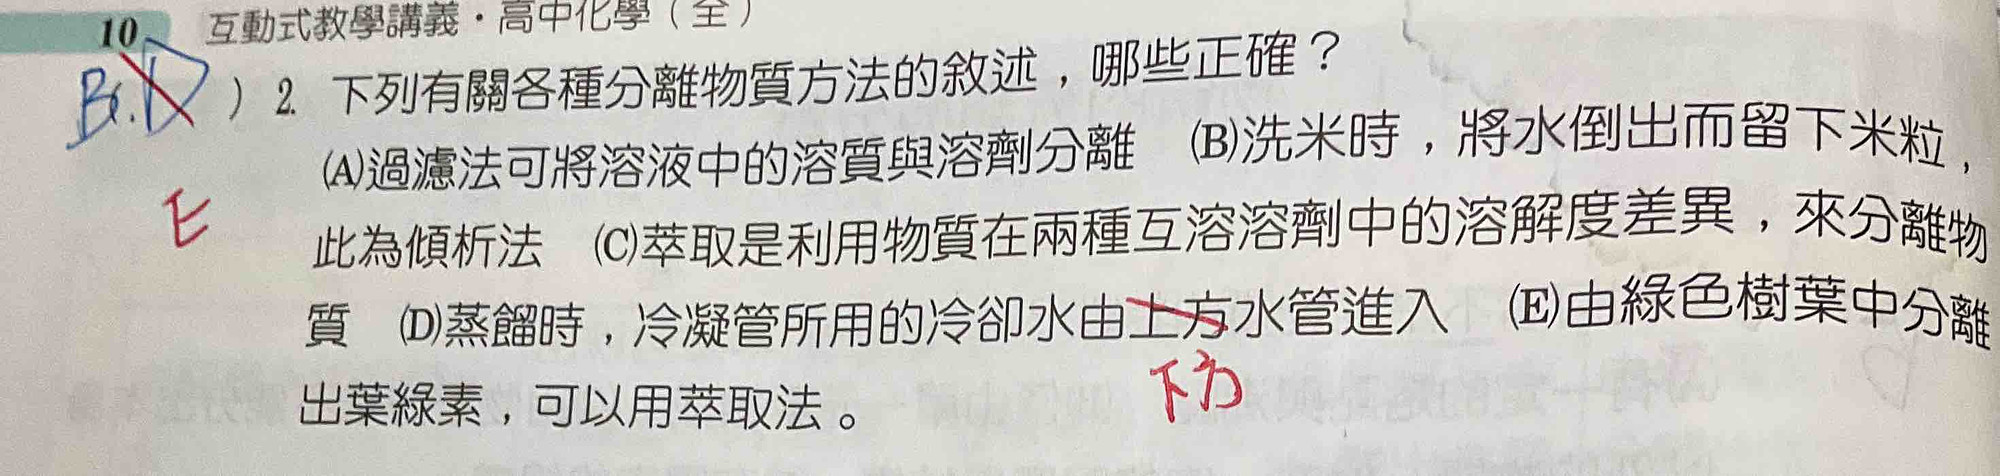 10 互動式教學講義・高中化學（全）
B. D ）2. 下列有關各種分離物質方法的敘述，哪些正確？
(A)過濾法可將溶液中的溶質與溶劑分離 (B)洗米時，將水倒出而留下米粒，
E
此為傾析法 (C)萃取是利用物質在兩種互溶溶劑中的溶解度差異，來分離物
質 (D)蒸餾時，冷凝管所用的冷卻水由上方水管進入 (E)由綠色樹葉中分離
下方
出葉綠素，可以用萃取法。